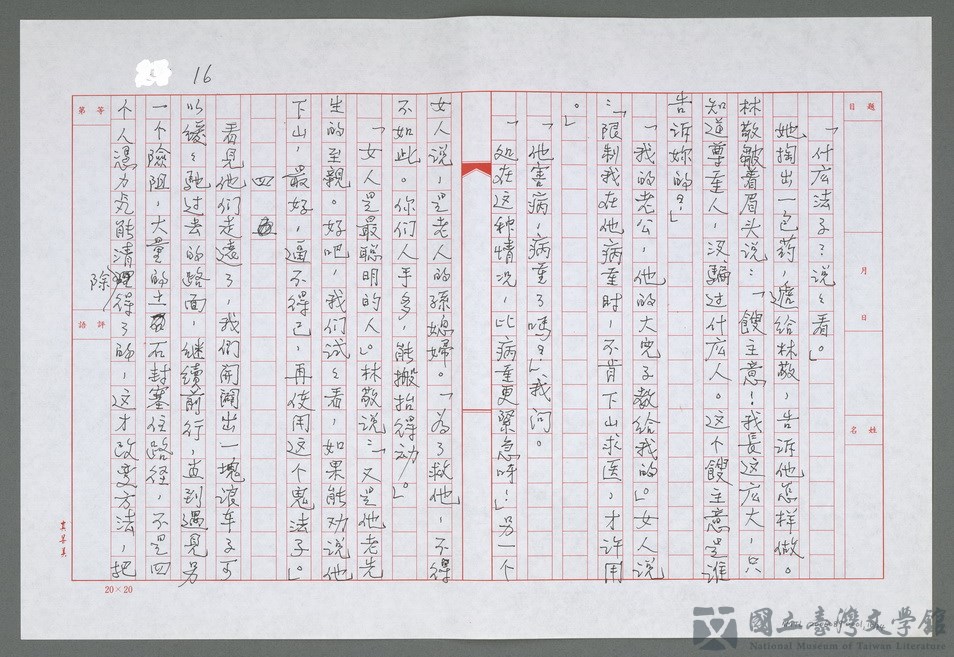 16
題目
月 日
姓名
「什広法子？説〻看。」
她掏出一包药，遞給林敬，告诉他怎样做。
林敬皺着眉头说：「餿主意！我長这広大，只
知道尊重人，没騙过什広人。这个餿主意是谁
告诉妳的？」
「我的老公，他的大兒子教給我的。」女人说
：「限制我在他病重时，不肯下山求医，才许用
。」
「他害病，病重了嗎？」我问。
「处在这种情况，比病重更緊急呀！」另一个
女人说，是老人的孫媳婦。「为了救他，不得
不如此。你们人手多，能搬抬得动。」
「女人是最聪明的人。」林敬说：「又是他老先
生的至親。好吧，我们试〻看，如果能劝说他
下山，最好，逼不得已，再使用这个鬼法子。」
四
看見他们走遠了，我們開闢出一塊滾车子可
以緩〻驰过去的路面，继續前行，直到遇見另
一个險阻，大量的土石封塞住路径，不是四
个人憑力気能清除得了的，这才改变方法，把
等第
評語
20×20
國立臺灣文學館
National Museum of Taiwan Literature